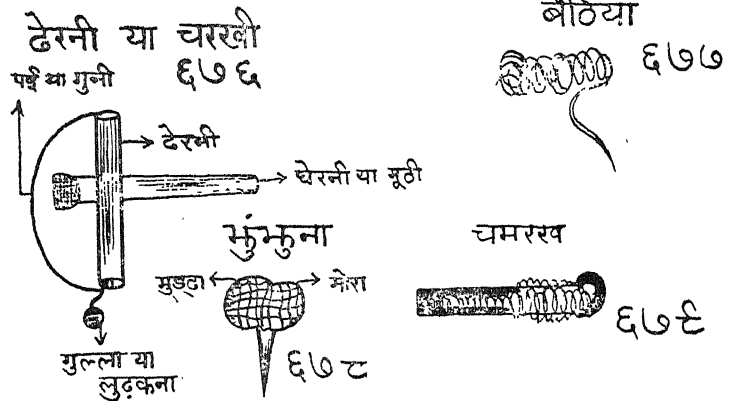 ढेरनी या चरखी
६७६
पई या गुनी
ढेरनी
घेरनी या मूठी
गुल्ला या
लुढ़कना
बैठिया
६७७
झुंझुना
मुड्ढा
मोरा
६७८
चमरख
६७९